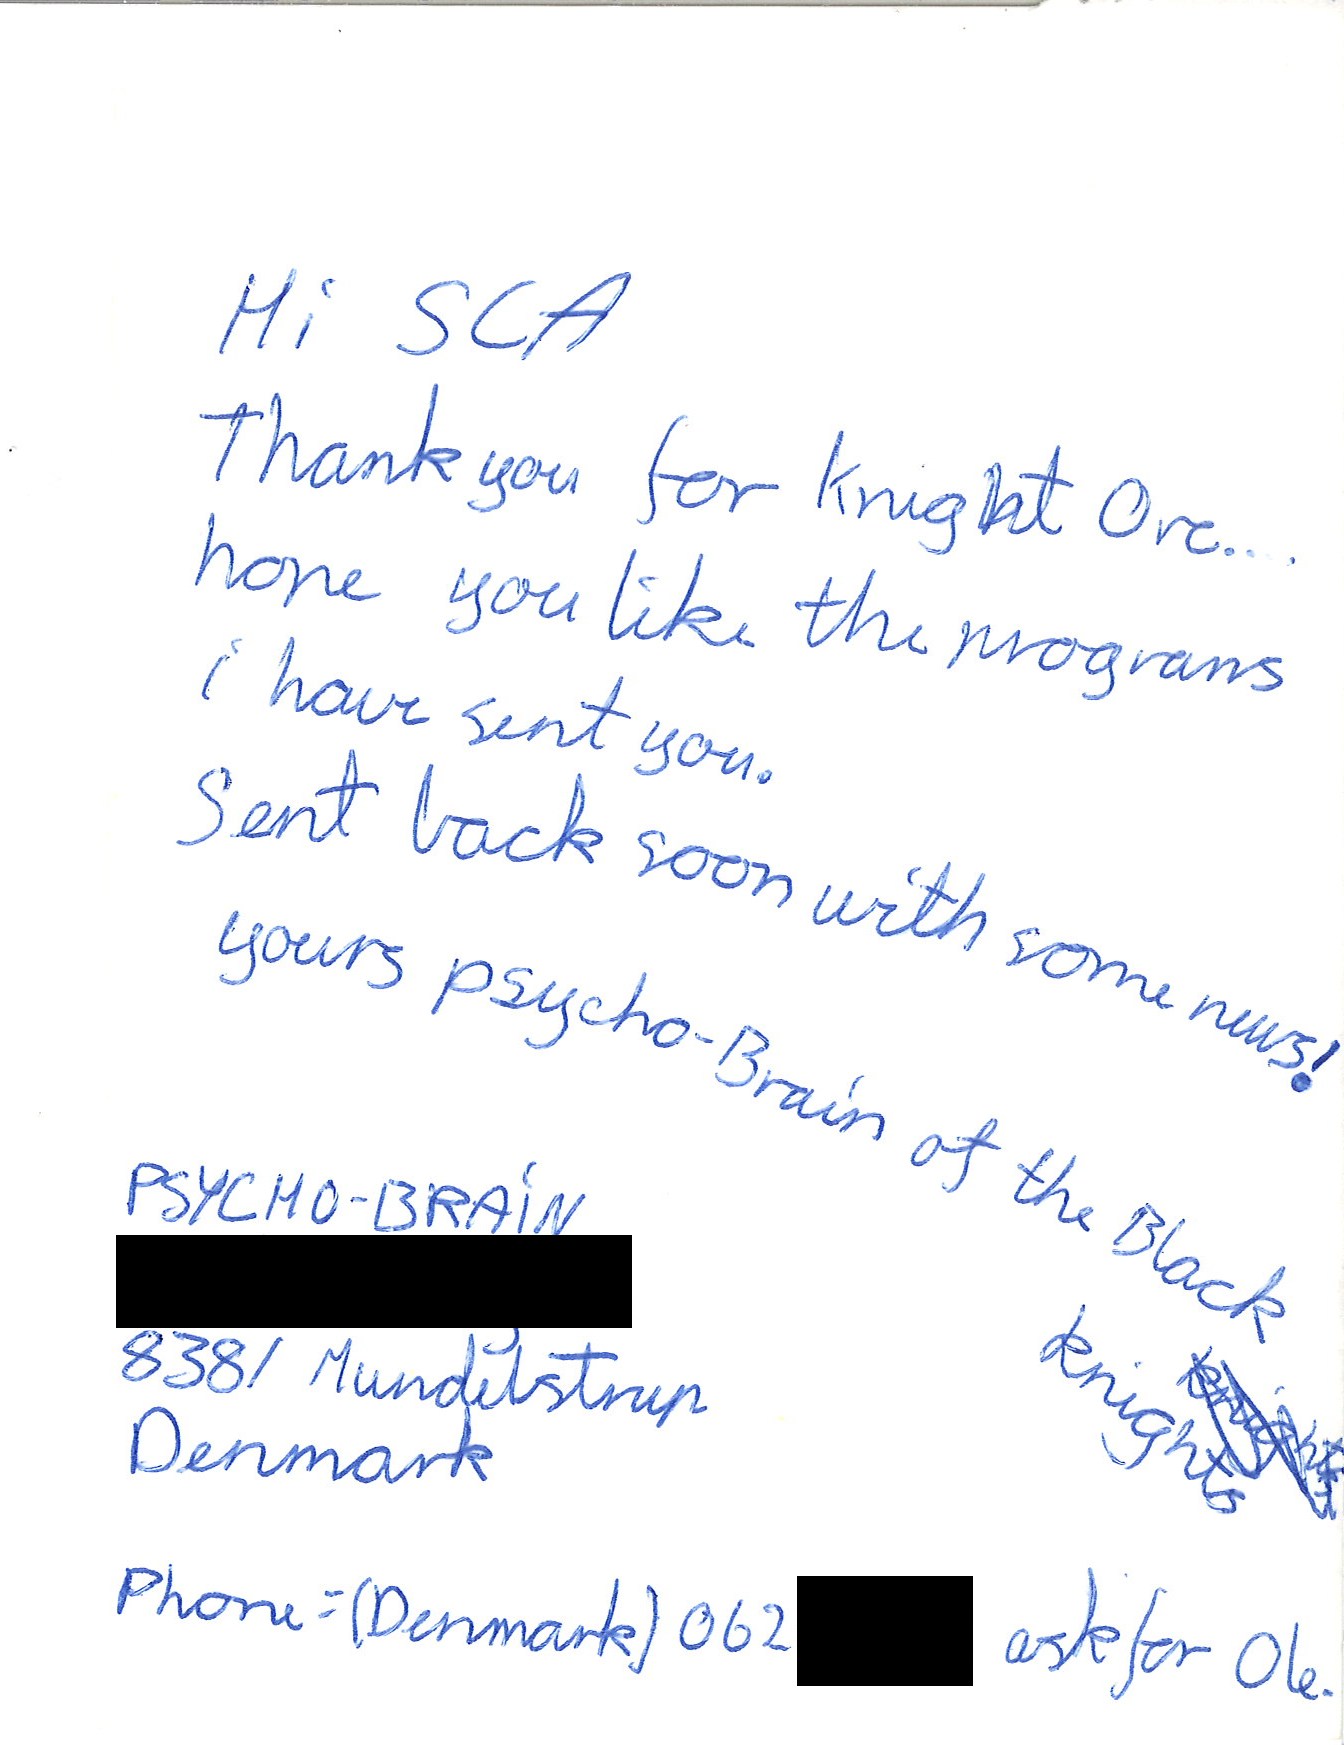 Hi SCA
Thank you for Knight Orc....
hope you like the programs
i have sent you.
Sent back soon with some news!
yours psycho-Brain of the Black
knights
PSYCHO-BRAiN
8381 Mundelstrup
Denmark
Phone=(Denmark) 062 ask for Ole.